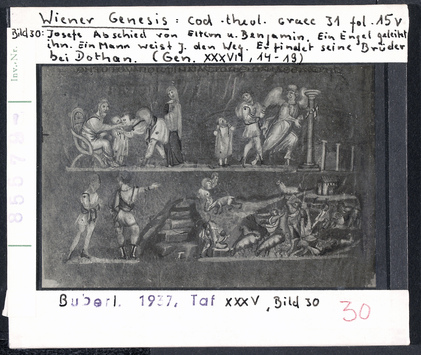 Wiener Genesis: cod. theol. graec 31 fol. 15v
Bild 30: Josefs Abschied von Eltern u. Benjamin. Ein Engel geleitet
ihn. Ein Mann weist J. den Weg. Er findet seine Brüder
bei Dothan. (Gen. XXXVII, 14-19)
Inv.-Nr.
Buberl. 1937, Taf XXXV, Bild 30
30